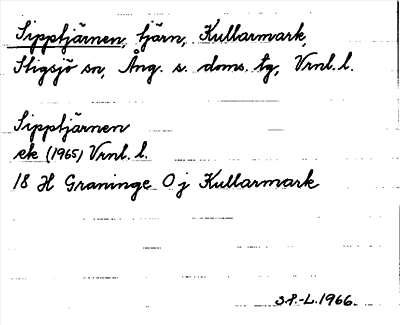 Sipptjärnen, tjärn, Kullarmark,
Stigsjö sn, Ång. s. doms. tg, Vrnl. l.
Sipptjärnen
ek (1965) Vrnl. l.
18 H Graninge 0 j Kullarmark
S.P.-L. 1966.